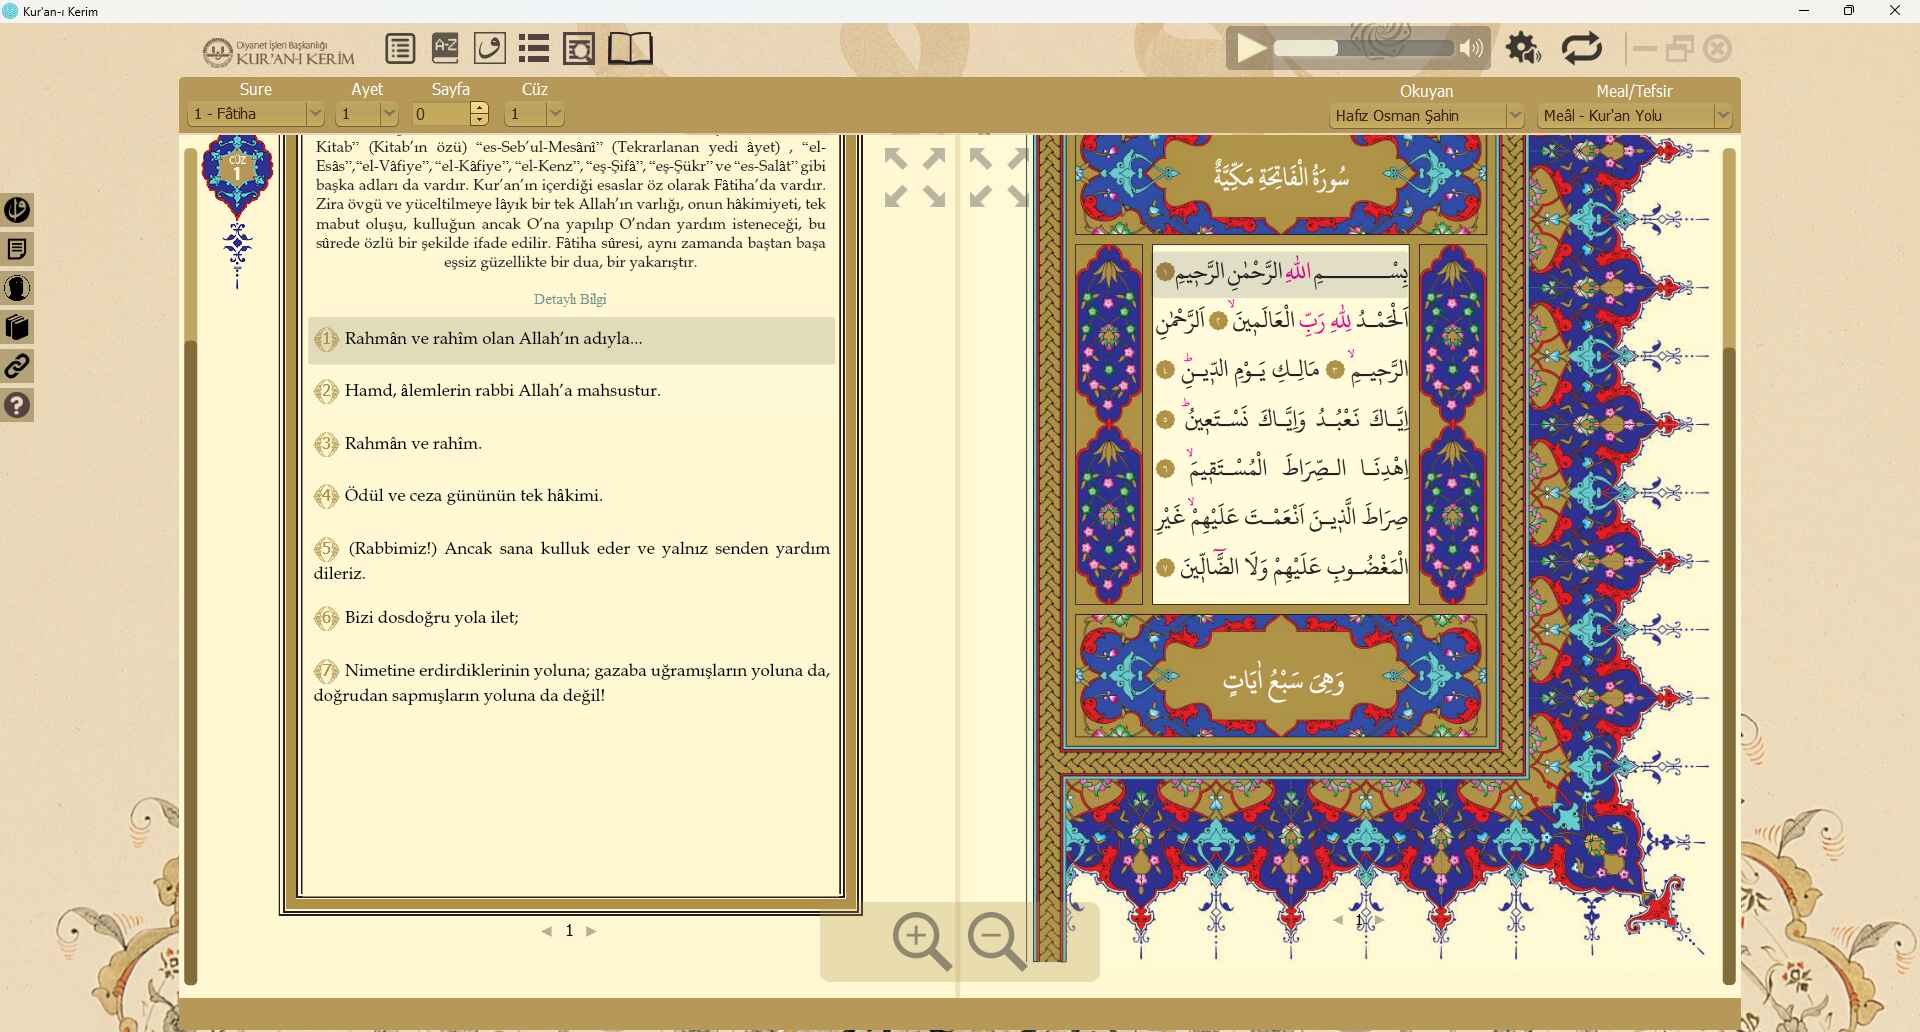 Kur'an-ı Kerim
Diyanet İşleri Başkanlığı
KUR'AN-I KERİM
A-Z
Sure
Ayet
Sayfa
Cüz
Okuyan
Meal/Tefsir
1 - Fâtiha
1
0
1
Hafız Osman Şahin
Meâl - Kur'an Yolu
CÜZ
1
Kitab” (Kitab’ın özü) “es-Seb’ul-Mesânî” (Tekrarlanan yedi âyet) , “el-
Esâs”,“el-Vâfiye”, “el-Kâfiye”, “el-Kenz”, “eş-Şifâ”, “eş-Şükr” ve “es-Salât” gibi
başka adları da vardır. Kur’an’ın içerdiği esaslar öz olarak Fâtiha’da vardır.
Zira övgü ve yüceltilmeye lâyık bir tek Allah’ın varlığı, onun hâkimiyeti, tek
mabut oluşu, kulluğun ancak O’na yapılıp O’ndan yardım isteneceği, bu
sûrede özlü bir şekilde ifade edilir. Fâtiha sûresi, aynı zamanda baştan başa
eşsiz güzellikte bir dua, bir yakarıştır.
Detaylı Bilgi
1 Rahmân ve rahîm olan Allah’ın adıyla...
2 Hamd, âlemlerin rabbi Allah’a mahsustur.
3 Rahmân ve rahîm.
4 Ödül ve ceza gününün tek hâkimi.
5 (Rabbimiz!) Ancak sana kulluk eder ve yalnız senden yardım
dileriz.
6 Bizi dosdoğru yola ilet;
7 Nimetine erdirdiklerinin yoluna; gazaba uğramışların yoluna da,
doğrudan sapmışların yoluna da değil!
1
سُورَةُ الْفَاتِحَةِ مَكِّيَّةٌ
بِسْــــــــمِ اللّٰهِ الرَّحْمٰنِ الرَّح۪يمِ ١
اَلْحَمْـدُ لِلّٰهِ رَبِّ الْعَالَم۪ينَۙ ٢ اَلرَّحْمٰنِ
الرَّح۪يـمِۙ ٣ مَالِـكِ يَـوْمِ الدّ۪يـنِۜ ٤
اِيَّـاكَ نَعْبُـدُ وَاِيَّـاكَ نَسْـتَع۪ينُۜ ٥
اِهْدِنَـا الـصِّرَاطَ الْمُسْـتَق۪يمَۙ ٦
صِرَاطَ الَّذ۪يـنَ اَنْعَمْـتَ عَلَيْهِمْۙ غَيْرِ
الْمَغْضُـوبِ عَلَيْهِمْ وَلَا الضَّٓالّ۪ينَ ٧
وَهِيَ سَبْعُ اٰيَاتٍ
1